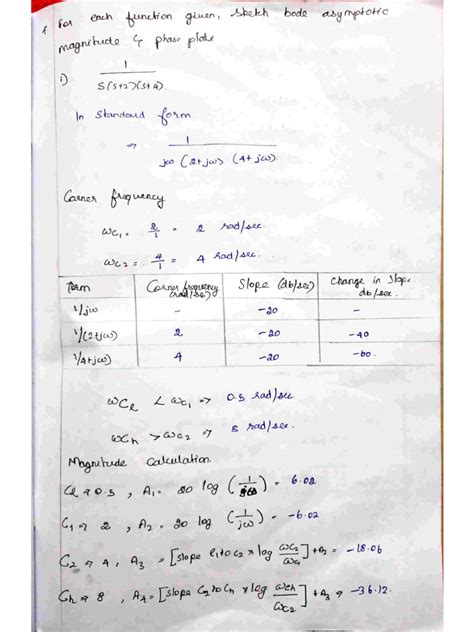 1. For each function given, sketch bode asymptotic
magnitude & phase plots
i) 1 / S(s+2)(s+4).
In Standard form
⇒ 1 / jω (2+jω) (4+jω).
Corner frequency
ωc1 = 2/1 = 2 rad/sec.
ωc2 = 4/1 = 4 rad/sec.
Term Corner frequency (rad/sec) Slope (db/sec) change in slope db/sec.
1/jω - -20 -
1/(2+jω) 2 -20 -40
1/(4+jω) 4 -20 -60.
ωcl < ωc1 ⇒ 0.5 rad/sec
ωch > ωc2 ⇒ 8 rad/sec.
Magnitude Calculation.
Cl ⇒ 0.5, A1 = 20 log (1/) = 6.02
C1 ⇒ 2, A2 = 20 log (1/jω) = -6.02
C2 ⇒ 4, A3 = [slope c1 to c2 × log ωc2/ωc1] + A2 = -18.06
Ch ⇒ 8, A4 = [slope C2 to Ch × log ωch/ωc2] + A3 ⇒ -36.12.